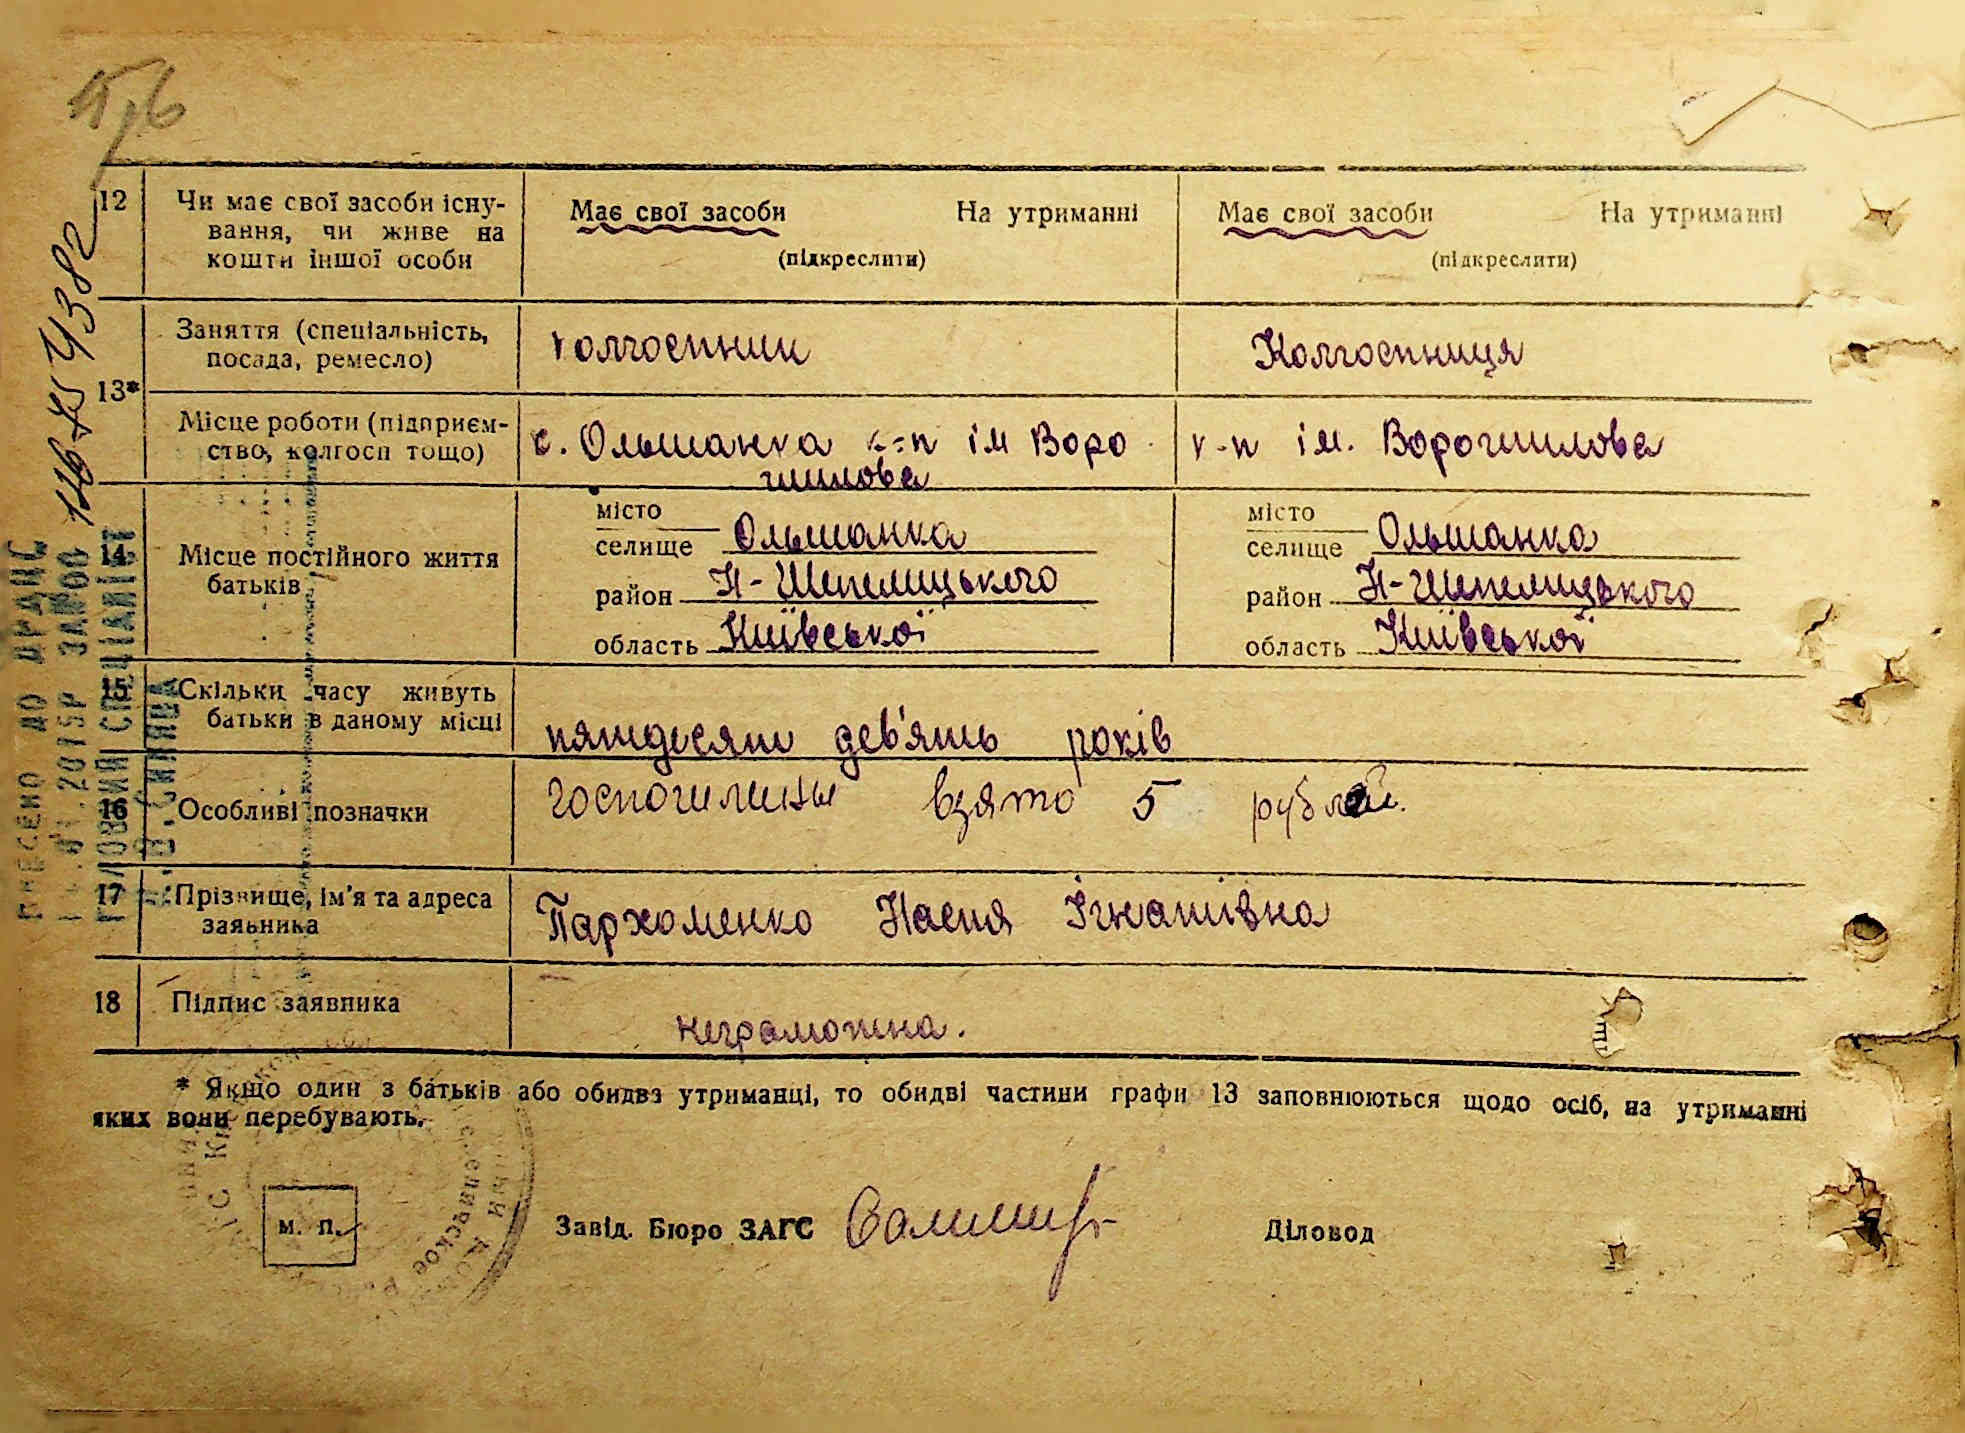 12 Чи має свої засоби існу- Має свої засоби На утриманні Має свої засоби На утриманні
вання, чи живе на
кошти іншої особи (підкреслити) (підкреслити)
Заняття (спеціальність, колгоспник Колгоспниця
посада, ремесло)
13*
Місце роботи (підприєм- с. Ольшанка к-п ім Воро к-п ім. Ворошилова
ство, колгосп тощо) шилова
місто місто
14 Місце постійного життя селище Ольшанка селище Ольшанка
батьків район Н-Шепелицького район Н-Шепелицького
область Київської область Київської
15 Скільки часу живуть
батьки в даному місці пятдесят дев'ять років
16 Особливі позначки взято 5 рублей.
17 Прізвище, ім'я та адреса Пархоменко Настя Ігнатівна
заявника
18 Підпис заявника неграмотна.
* Якщо один з батьків або обидва утриманці, то обидві частини графи 13 заповнюються щодо осіб, на утриманні
яких вони перебувають.
м. п. Завід. Бюро ЗАГС Діловод
ВНЕСЕНО ДО ДРАЦС
2015Р ЗА №00 116 75 4382
ГОЛОВНИЙ СПЕЦІАЛІСТ